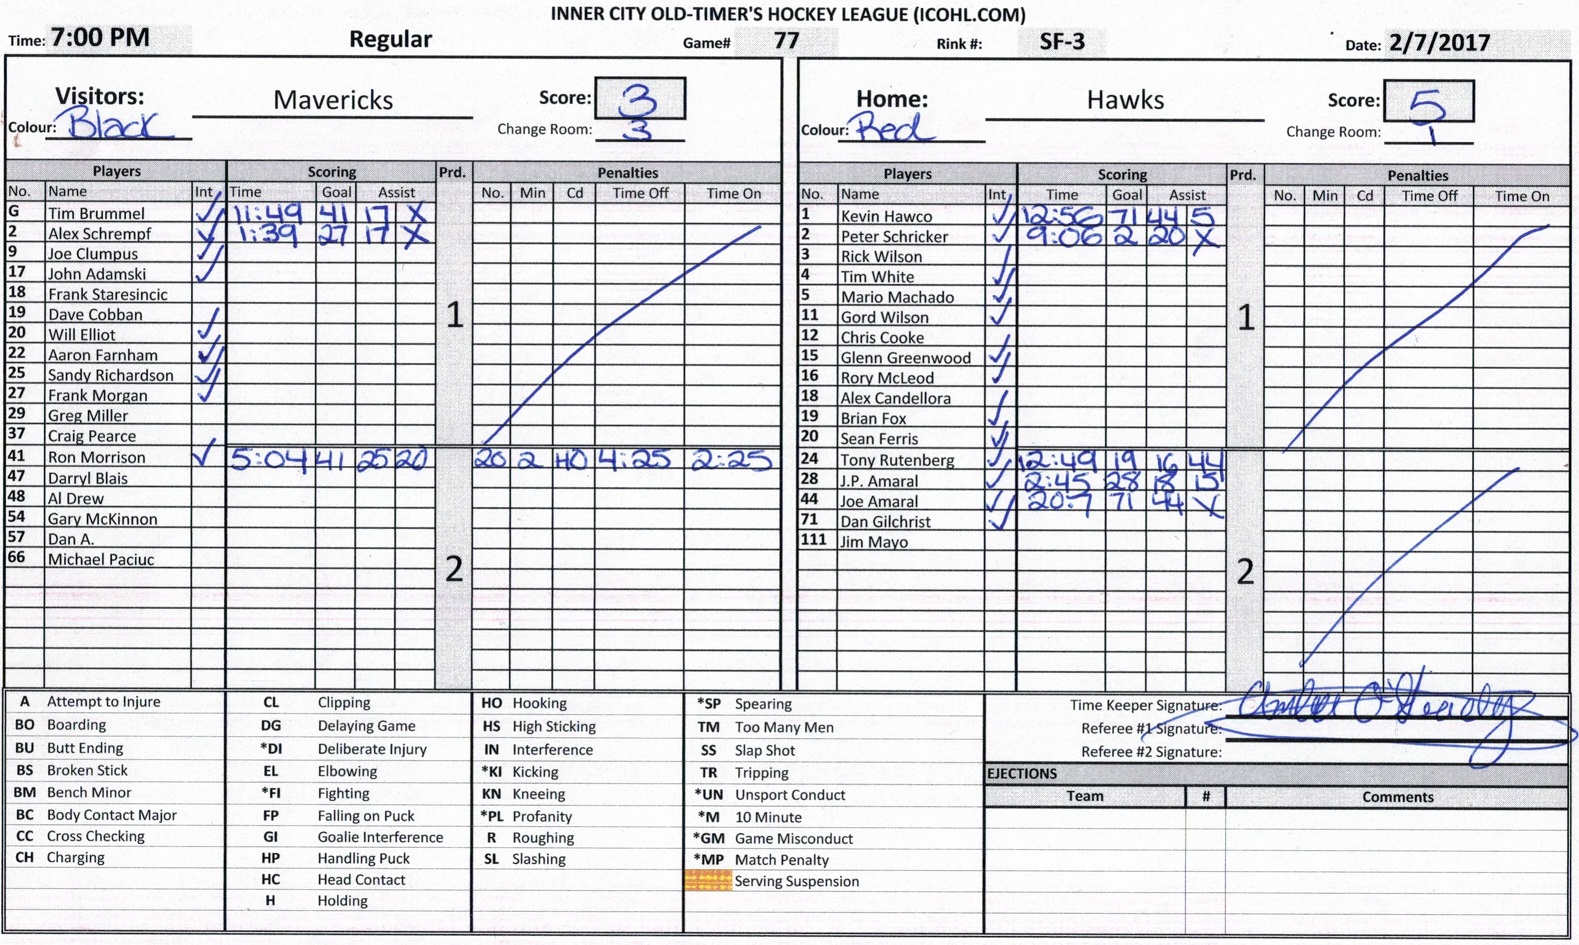 INNER CITY OLD-TIMER'S HOCKEY LEAGUE (ICOHL.COM)
Time: 7:00 PM Regular Game# 77 Rink #: SF-3 Date: 2/7/2017
Visitors: Mavericks Score: 3
Colour: Black Change Room: 3
Home: Hawks Score: 5
Colour: Red Change Room: 1
Players Scoring Prd. Penalties
No. Name Int Time Goal Assist No. Min Cd Time Off Time On
G Tim Brummel ✓ 11:49 41 17 X
2 Alex Schrempf ✓ 1:39 27 17 X
9 Joe Clumpus ✓
17 John Adamski ✓
18 Frank Staresincic
19 Dave Cobban ✓
20 Will Elliot ✓
22 Aaron Farnham ✓
25 Sandy Richardson ✓
27 Frank Morgan ✓
29 Greg Miller
37 Craig Pearce
1
41 Ron Morrison ✓ 5:04 41 25 20 20 2 HO 4:25 2:25
47 Darryl Blais
48 Al Drew
54 Gary McKinnon
57 Dan A.
66 Michael Paciuc
2
Players Scoring Prd. Penalties
No. Name Int Time Goal Assist No. Min Cd Time Off Time On
1 Kevin Hawco ✓ 12:56 71 44 5
2 Peter Schricker ✓ 9:06 2 20 X
3 Rick Wilson
4 Tim White ✓
5 Mario Machado ✓
11 Gord Wilson ✓
12 Chris Cooke
15 Glenn Greenwood ✓
16 Rory McLeod ✓
18 Alex Candellora
19 Brian Fox ✓
20 Sean Ferris ✓
1
24 Tony Rutenberg ✓ 12:49 19 16 44
28 J.P. Amaral ✓ 2:45 28 18 15
44 Joe Amaral ✓ 20.7 71 44 X
71 Dan Gilchrist ✓
111 Jim Mayo
2
A Attempt to Injure
BO Boarding
BU Butt Ending
BS Broken Stick
BM Bench Minor
BC Body Contact Major
CC Cross Checking
CH Charging
CL Clipping
DG Delaying Game
*DI Deliberate Injury
EL Elbowing
*FI Fighting
FP Falling on Puck
GI Goalie Interference
HP Handling Puck
HC Head Contact
H Holding
HO Hooking
HS High Sticking
IN Interference
*KI Kicking
KN Kneeing
*PL Profanity
R Roughing
SL Slashing
*SP Spearing
TM Too Many Men
SS Slap Shot
TR Tripping
*UN Unsport Conduct
*M 10 Minute
*GM Game Misconduct
*MP Match Penalty
Serving Suspension
Time Keeper Signature:
Referee #1 Signature:
Referee #2 Signature:
EJECTIONS
Team # Comments